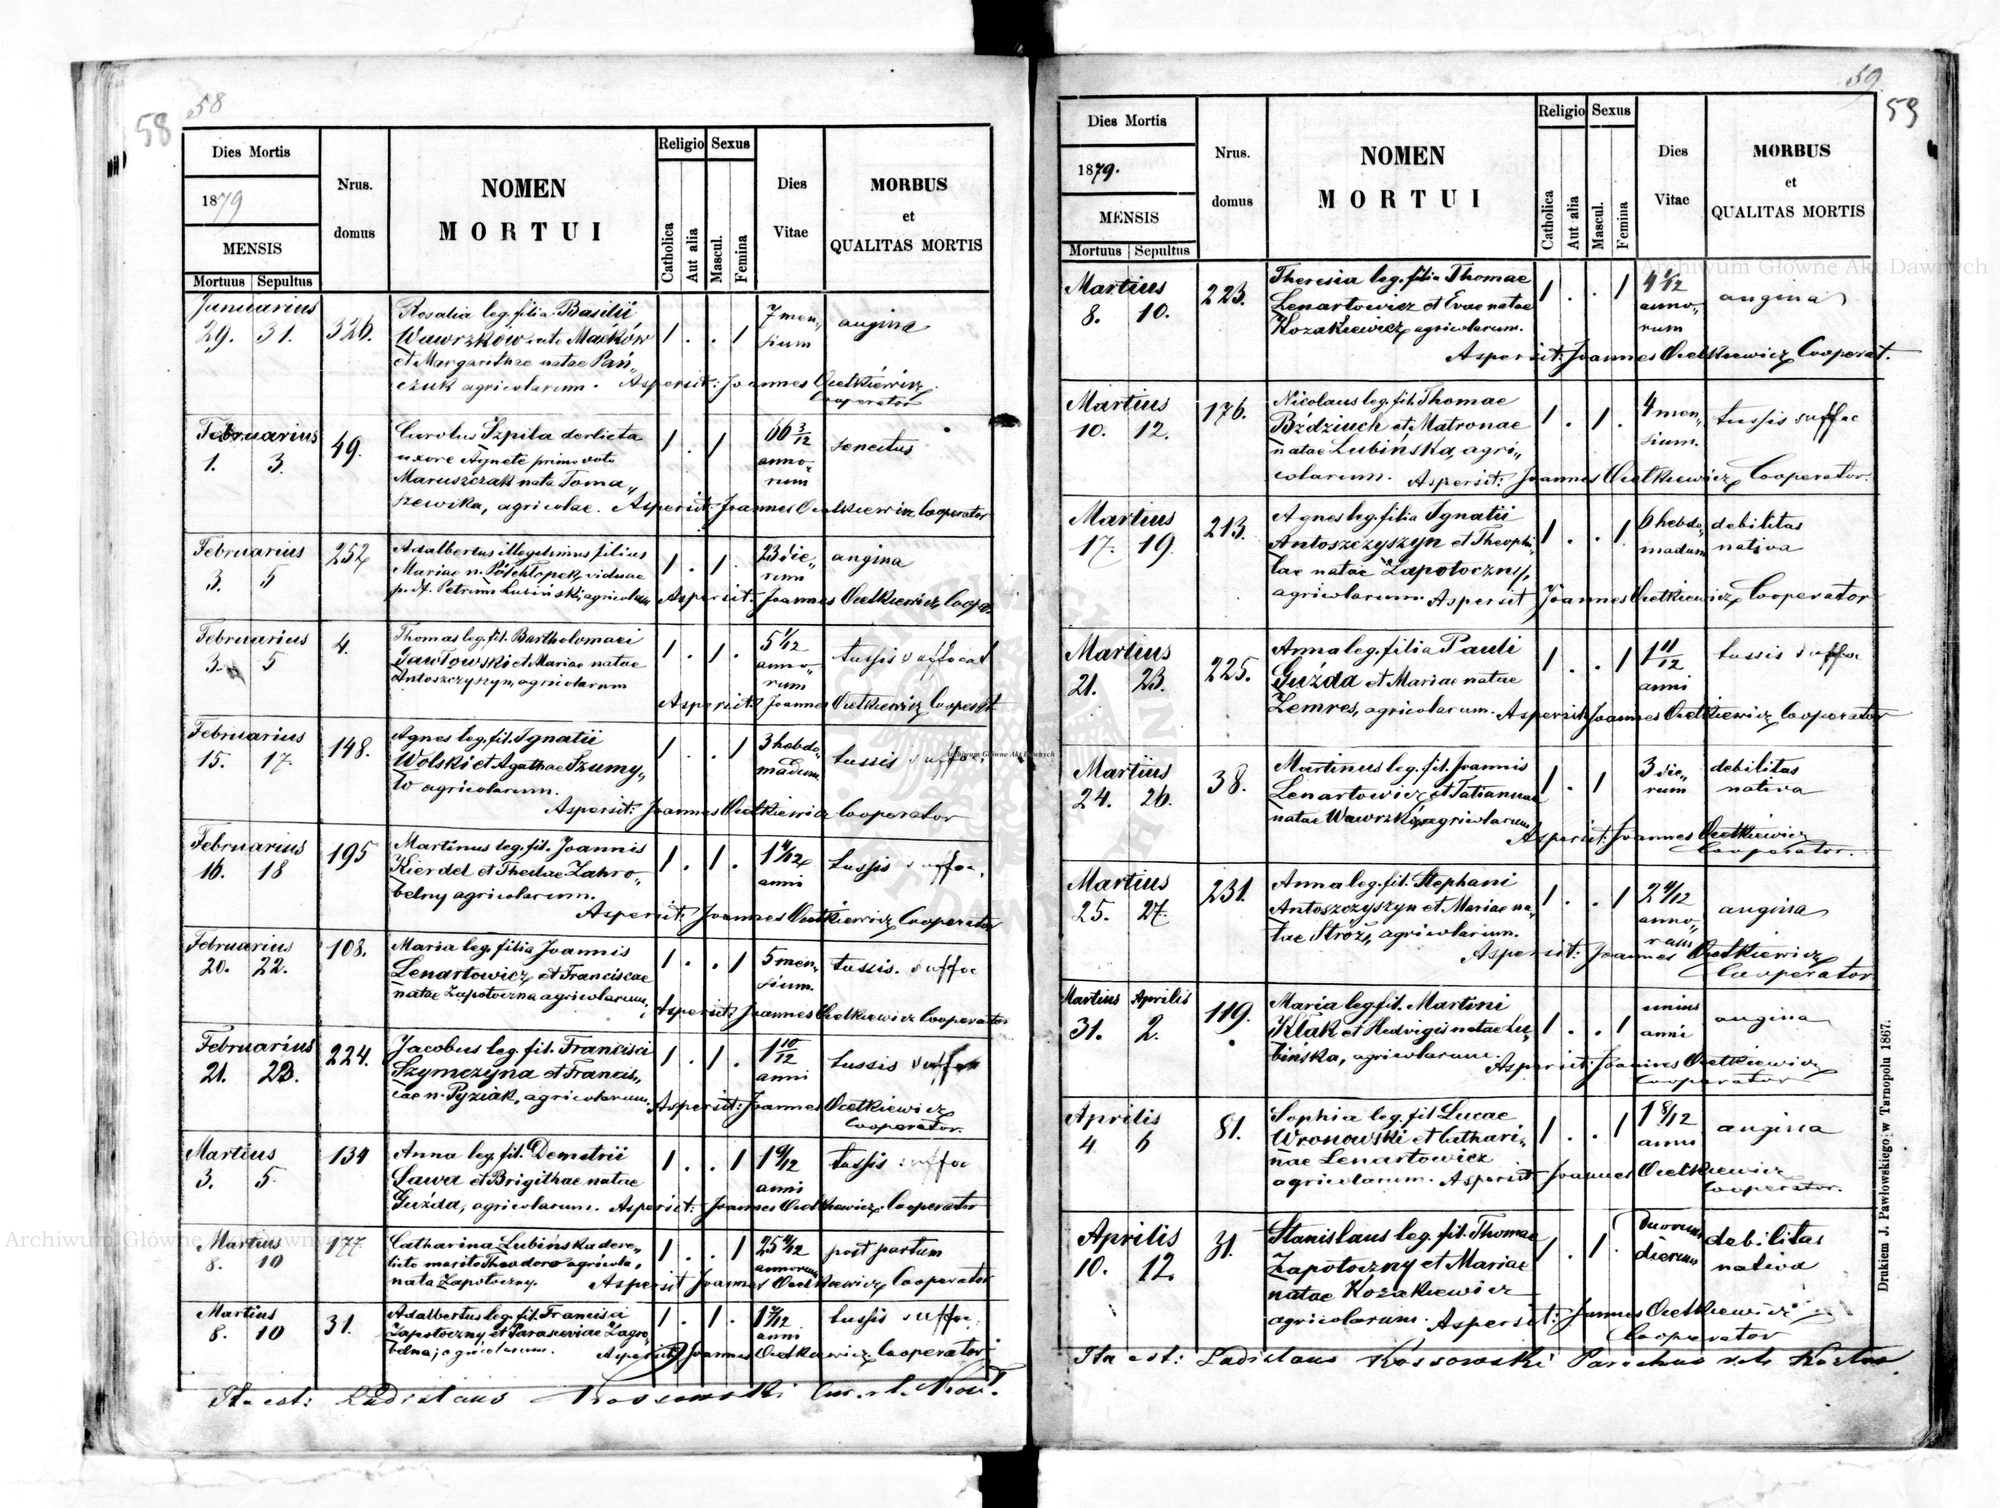 58
58
Dies Mortis
1879
MENSIS
Mortuus Sepultus
Nrus.
domus
NOMEN
MORTUI
Religio
Catholica
Aut alia
Sexus
Mascul.
Femina
Dies
Vitae
MORBUS
et
QUALITAS MORTIS
Januarius
29. 31. 326.
Rosalia leg. filia Basilii
Wawrzków recte Maćków
et Margarithae natae Pań„
czuk agricolarum.
1 . . 1
7 men„
sium
angina
Aspersit: Joannes Ocetkiewicz
Cooperator
Februarius
1. 3. 49.
Carolus Szpila derlicta
uxore Agnete primo voto
Maruszczak nata Toma„
szewska, agricolae.
1 . 1
66 3/12
anno„
rum
senectus
Aspersit: Joannes Ocetkiewicz Cooperator
Februarius
3. 5 252
Adalbertus illegitimus filius
Mariae n. Półchłopek, viduae
p. df. Petrum Lubiński, agricolam
1 . 1 .
23 die„
rum
angina
Aspersit. Joannes Ocetkiewicz Coope.
Februarius
3. 5 4.
Thomas leg. fil. Bartholomaei
Gawłowski et Mariae natae
Antoszczyszyn, agricolarum
1 . 1 .
5 1/12
anno„
rum
tussis suffocat
Aspersit: Joannes Ocetkiewicz Cooperat
Februarius
15. 17. 148.
Agnes leg. fil. Ignatii
Wolski et Agathae Szumy„
ło agricolarum.
1 . . 1
3 hebdo„
madum
tussis suffo.
Aspersit: Joannes Ocetkiewicz Cooperator
Februarius
16. 18 195
Martinus leg. fil. Joannis
Kierdel et Theclae Zahro„
belny agricolarum.
1 . 1 .
1 4/12
anni
tussis suffoc.
Aspersit: Joannes Ocetkiewicz Cooperator
Februarius
20. 22. 108.
Maria leg. filia Joannis
Lenartowicz et Franciscae
natae Zapotoczna agricolarum.
1 . . 1
5 men„
sium.
tussis. suffoc
Aspersit: Joannes Ocetkiewicz Cooperator
Februarius
21. 23. 224.
Jacobus leg. fil. Francisci
Szymczyna et Francis„
cae n. Pyziak, agricolarum.
1 . 1 .
1 10/12
anni
tussis suffoc
Aspersit: Joannes Ocetkiewicz
Cooperator.
Martius
3. 5. 134
Anna leg. fil. Demetrii
Sawa et Brigithae natae
Guźda, agricolarum.
1 . . 1
1 9/12
anni
tussis suffoc
Aspersit: Joannes Ocetkiewicz Cooperator
Martius
8. 10 177
Catharina Lubińska dere„
licto marito Theodoro agricola,
nata Zapotoczny.
1 . . 1
25 4/12
annorum
post partum
Aspersit Joannes Ocetkiewicz Cooperator
Martius
8. 10 31.
Adalbertus leg. fil. Francisci
Zapotoczny et Parasceviae Zagro„
belna, agricolarum.
1 . 1 .
anni
tussis suffoc.
Aspersit Joannes Ocetkiewicz Cooperator
Ita est: Ladislaus Kossowski
59
59
Dies Mortis
1879.
MENSIS
Mortuus Sepultus
Nrus.
domus
NOMEN
MORTUI
Religio
Catholica
Aut alia
Sexus
Mascul.
Femina
Dies
Vitae
MORBUS
et
QUALITAS MORTIS
Martius
8. 10. 223.
Theresia leg. filia Thomae
Lenartowicz et Evae natae
Kozakiewicz, agricolarum.
1 . . 1
4 1/12
anno„
rum
angina
Aspersit: Joannes Ocetkiewicz Cooperat.
Martius
10. 12. 176.
Nicolaus leg. fil. Thomae
Bździuch et Matronae
natae Lubińska, agri„
colarum.
1 . 1 .
4 men„
sium.
tussis suffoc
Aspersit: Joannes Ocetkiewicz Cooperator.
Martius
17. 19. 213.
Agnes leg. filia Ignatii
Antoszczyszyn et Theophi„
lae natae Zapotoczny,
agricolarum.
1 . . 1
6 hebdo„
madum
debilitas
nativa
Aspersit Joannes Ocetkiewicz Cooperator
Martius
21. 23. 225.
Anna leg. filia Pauli
Guźda et Mariae natae
Zemres, agricolarum.
1 . . 1
1 11/12
anni
tussis suffoc
Aspersit Joannes Ocetkiewicz Cooperator
Martius
24. 26. 38.
Martinus leg. fil. Joannis
Lenartowicz et Tatiannae
natae Wawrzków agricolarum
1 . 1
3 die„
rum
debilitas
nativa
Aspersit: Joannes Ocetkiewicz
Cooperator.
Martius
25. 27. 231.
Anna leg. fil. Stephani
Antoszczyszyn et Mariae na„
tae Stroż, agricolarum.
1 . . 1
2 4/12
anno„
rum
angina
Aspersit: Joannes Ocetkiewicz
Cooperator
Martius Aprilis
31. 2. 119.
Maria leg. fil. Martini
Kłak et Hedvigis natae Lu„
binska, agricolarum.
1 . . 1
unius
anni
angina
Aspersit: Joannes Ocetkiewicz
Cooperator
Aprilis
4 6 81.
Sophia leg. fil. Lucae
Wronowski et Cathari„
nae Lenartowicz
agricolarum.
1 . . 1
1 8/12
anni
angina
Aspersit Joannes Ocetkiewicz
Cooperator.
Aprilis
10. 12. 31.
Stanislaus leg. fil. Thomae
Zapotoczny et Mariae
natae Kozakiewicz
agricolarum.
1 . 1 .
duorum
dierum
debilitas
nativa
Aspersit: Joannes Ocetkiewicz
Cooperator
Ita est: Ladislaus Kossowski Parochus
Drukiem J. Pawłowskiego w Tarnopolu 1867.
Archiwum Główne Akt Dawnych
Archiwum Główne Akt Dawnych
Archiwum Główne Akt Dawnych